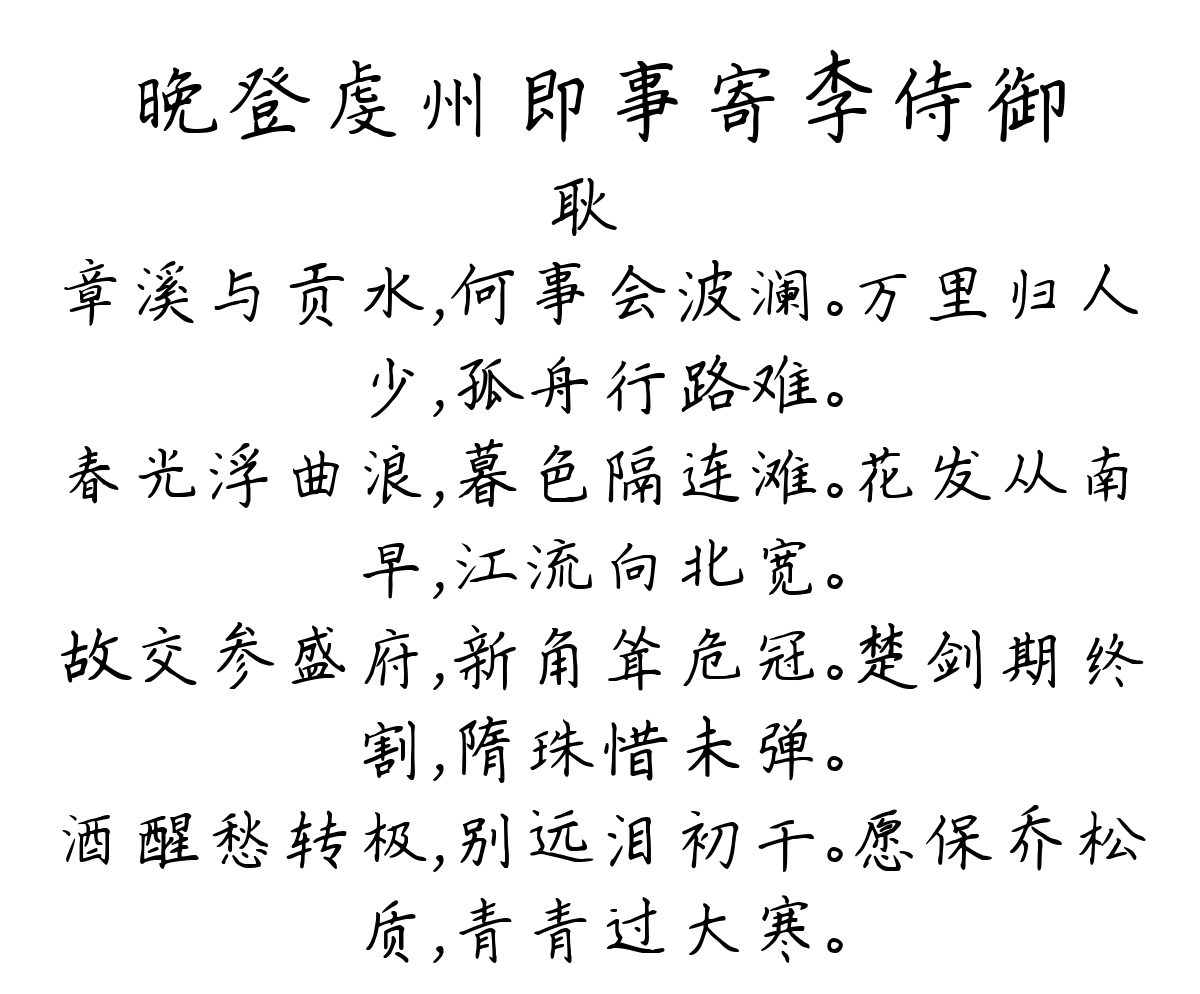 晚登虔州即事寄李侍御
耿
章溪与贡水,何事会波澜。万里归人
少,孤舟行路难。
春光浮曲浪,暮色隔连滩。花发从南
早,江流向北宽。
故交参盛府,新角耸危冠。楚剑期终
割,隋珠惜未弹。
酒醒愁转极,别远泪初干。愿保乔松
质,青青过大寒。